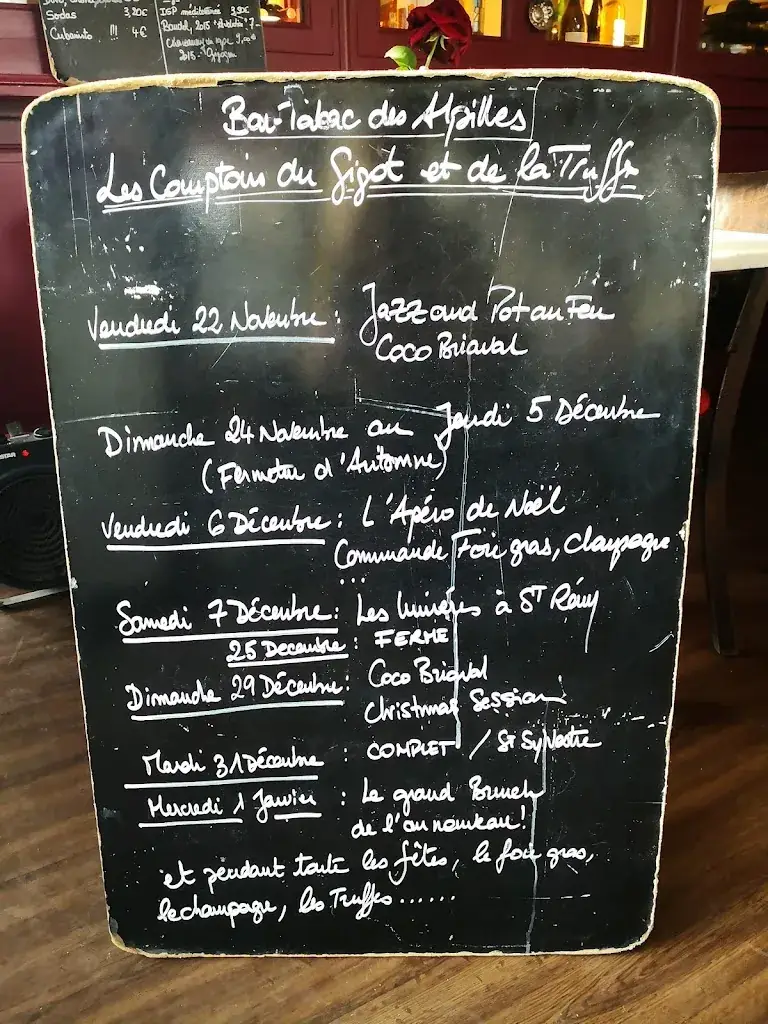 Sodas 3,20€
Cubanisto !!! 4€
IGP méditerranée 3,90€
Bandol, 2015
2015
Bar-Tabac des Alpilles
Les Comptoirs du Gigot et de la Truffe
Vendredi 22 Novembre : Jazz and Pot au Feu
Coco Briaval
Dimanche 24 Novembre au Jeudi 5 Décembre
(Fermeture d'Automne)
Vendredi 6 Décembre : L'Apéro de Noël
Commande Foie gras, Champagne
...
Samedi 7 Décembre : Les lumières à ST Rémy
25 Decembre : FERME
Dimanche 29 Décembre : Coco Briaval
Christmas Session
Mardi 31 Décembre : COMPLET / St Sylvestre
Mercredi 1 Janvier : Le grand Brunch
de l'an nouveau !
et pendant toute les fêtes, le foie gras,
le champagne, les Truffes ......